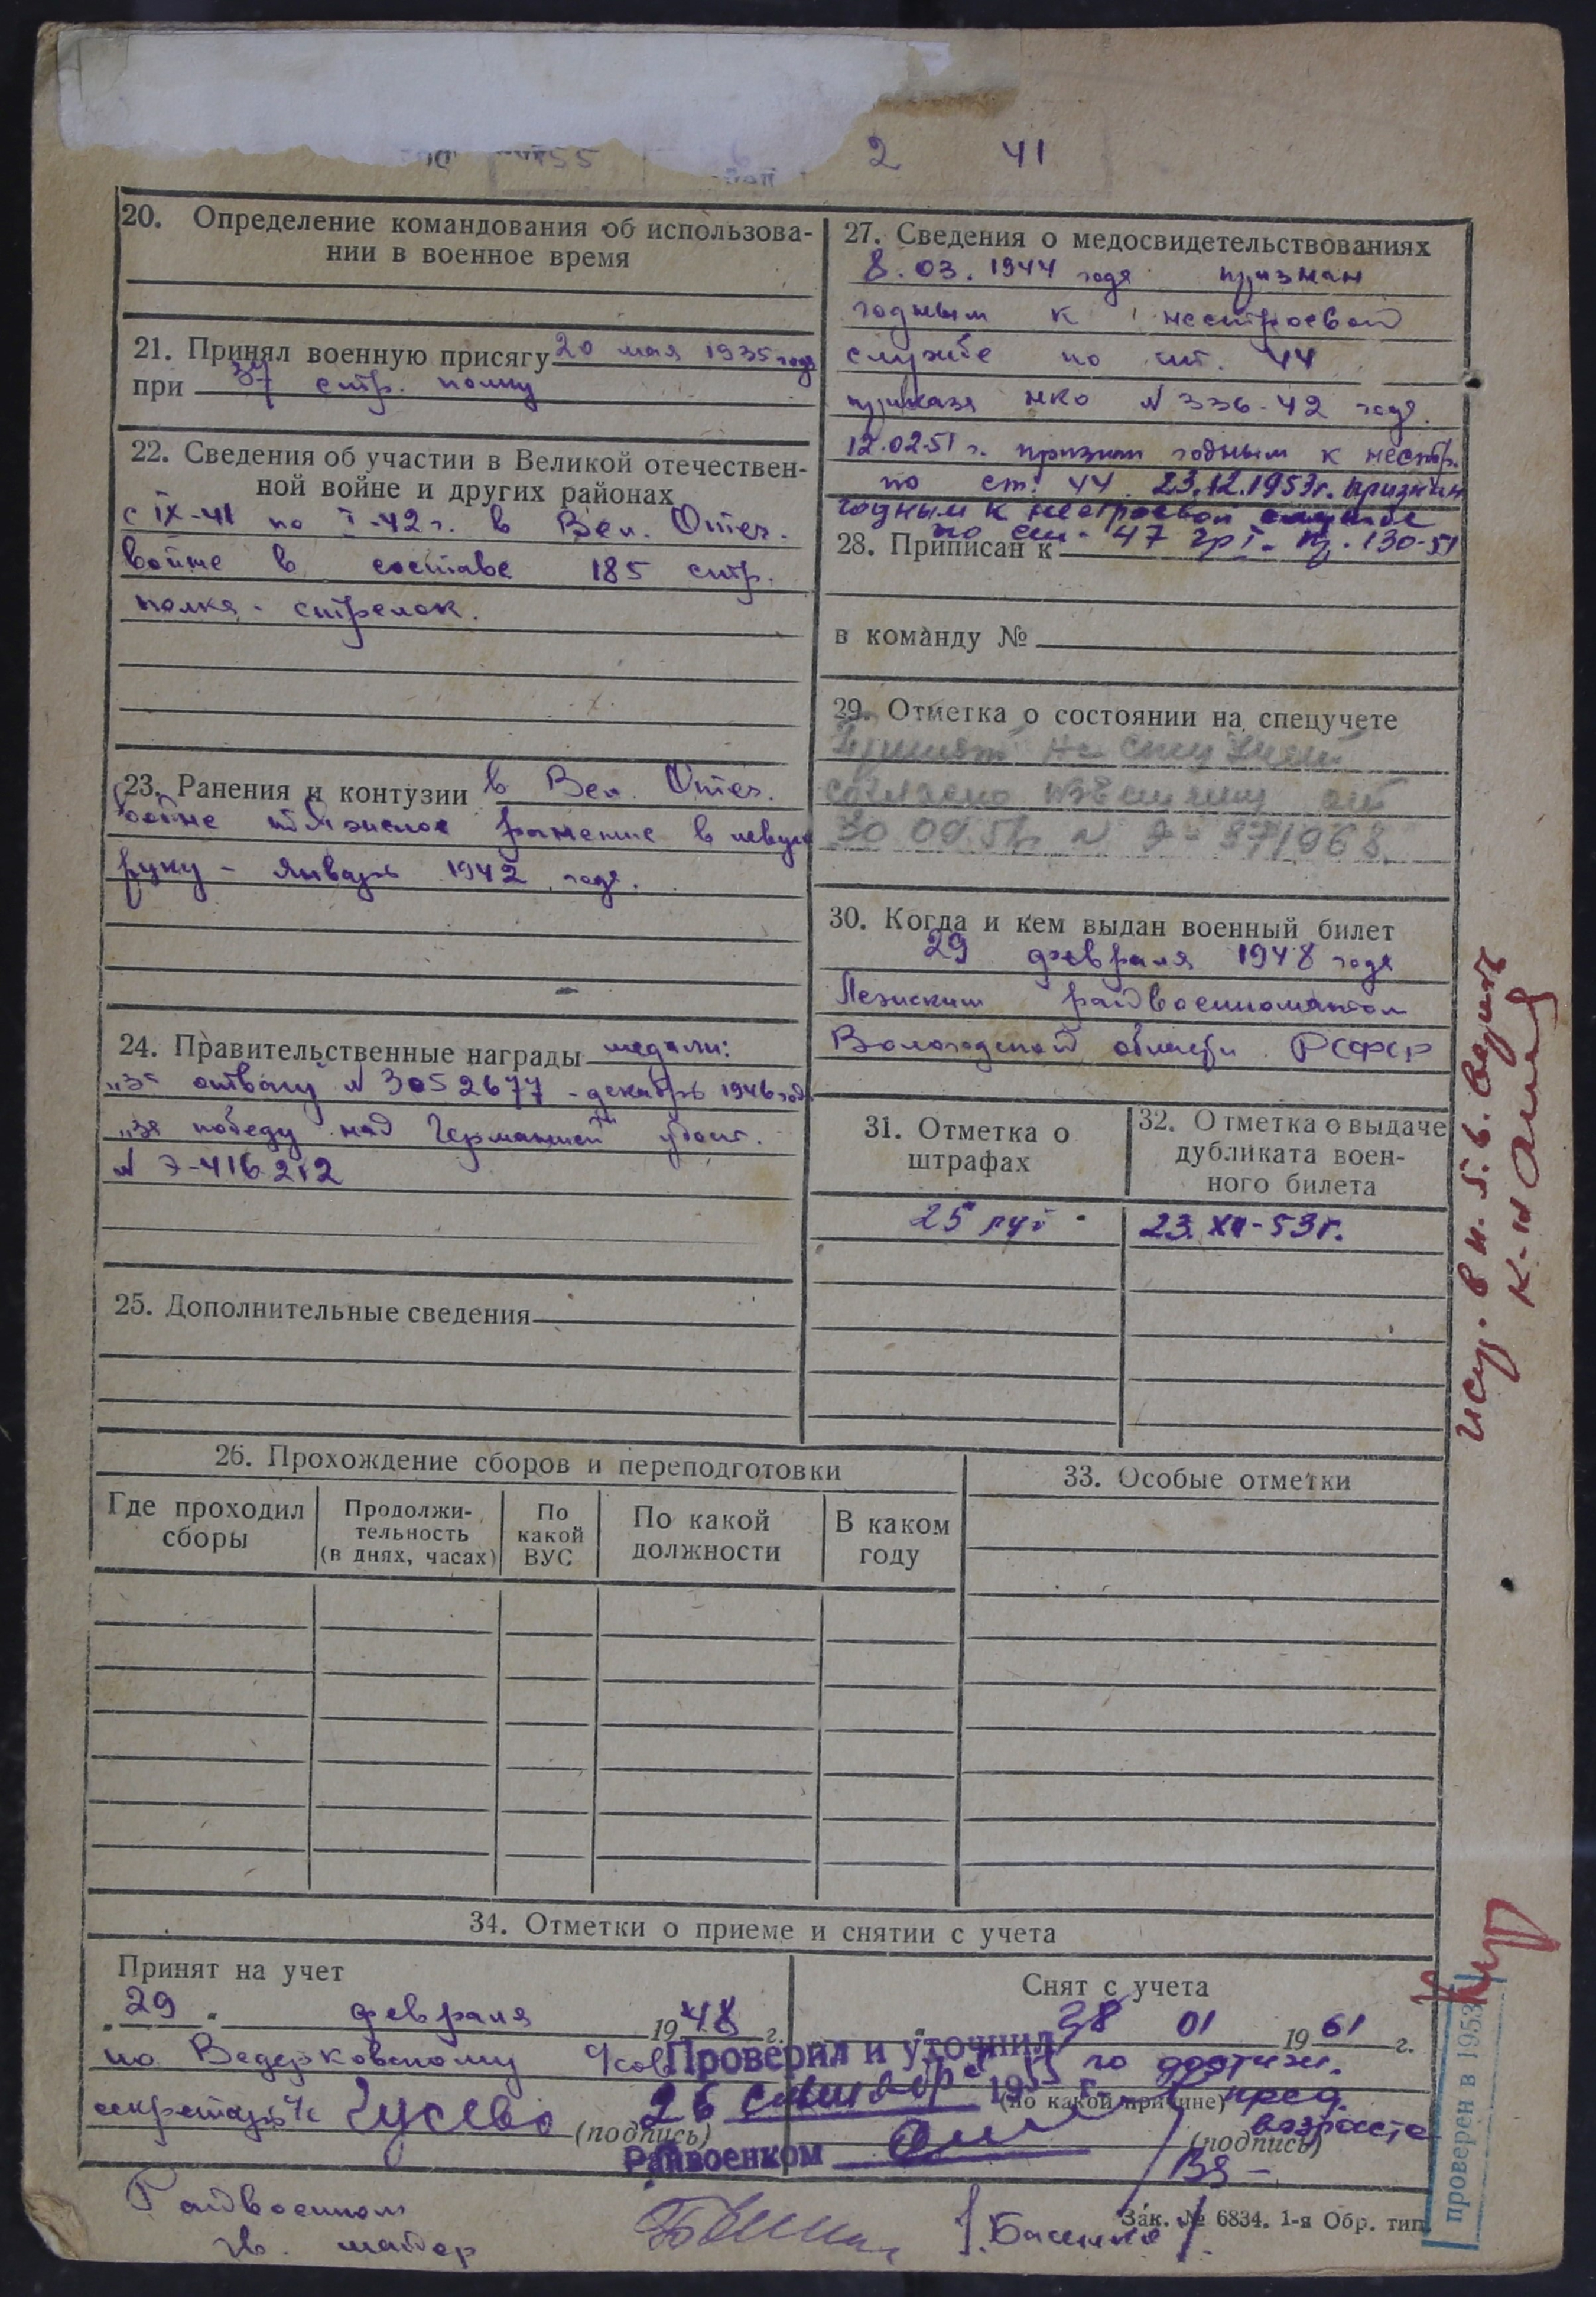 2 41
20. Определение командования об использова-
нии в военное время
21. Принял военную присягу 20 мая 1935 года
при 37 стр. полку
22. Сведения об участии в Великой отечествен-
ной войне и других районах
с IX-41 по I-42 г. в Вел. Отеч.
войне в составе 185 стр.
полка - стрелок.
23. Ранения и контузии в Вел. Отеч.
войне тяжелое ранение в левую
руку - январь 1942 года.
24. Правительственные награды медали:
"За отвагу" № 3052677 - декабрь 1946 года
"За победу над Германией" удост.
№ Э-416212
25. Дополнительные сведения
27. Сведения о медосвидетельствованиях
8.03.1944 года признан
годным к нестроевой
службе по ст. 44
приказа НКО № 336-42 года.
12.02.51 г. признан годным к нестр.
по ст. 44. 23.12.1953г. признан
годным к нестроевой службе
по ст. 47 гр I. пр. 130-51
28. Приписан к
в команду №
29. Отметка о состоянии на спецучете
Принят на спец учет
согласно от
30.09.5 № Э-971968
30. Когда и кем выдан военный билет
29 февраля 1948 года
райвоенкоматом
Вологодской области РСФСР
31. Отметка о
штрафах
25 руб
32. Отметка о выдаче
дубликата воен-
ного билета
23.XII-53г.
26. Прохождение сборов и переподготовки
Где проходил
сборы
Продолжи-
тельность
(в днях, часах)
По
какой
ВУС
По какой
должности
В каком
году
33. Особые отметки
34. Отметки о приеме и снятии с учета
Принят на учет
"29" февраля 1948 г.
по Ведерковскому
секретарь с/с Гусева (подпись)
Снят с учета
28 01 1961 г.
по достиж.
пред.
возраста
(по какой причине)
(подпись)
Проверил и уточнил
26 19 г.
Райвоенком
Райвоенком
гв. майор
Зак. № 6834. 1-я Обр. тип.
проверен в 1953